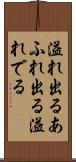 溢れ出るあ
ふれ出る溢
れでる